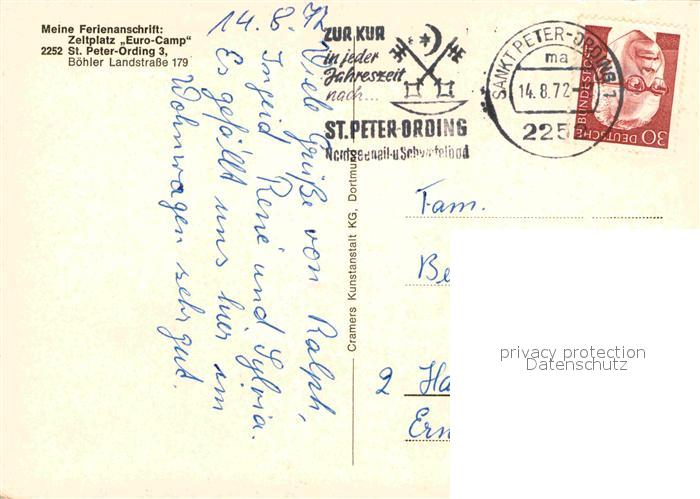 Meine Ferienanschrift:
Zeltplatz „Euro-Camp"
2252 St. Peter-Ording 3,
Böhler Landstraße 179
14.8.72
Viele Grüße von Ralph,
Ingrid René und Sylvia.
Es gefällt uns hier im
Wohnwagen sehr gut.
Cramers Kunstanstalt KG, Dortmund
ZUR KUR
in jeder
Jahreszeit
nach...
ST. PETER-ORDING
Nordseeheil- u Schwefelbad
SANKT PETER-ORDING 1
ma
14.8.72
225
DEUTSCHE BUNDESPOST
30
Fam.
Be
2 Ha
Ern
privacy protection
Datenschutz